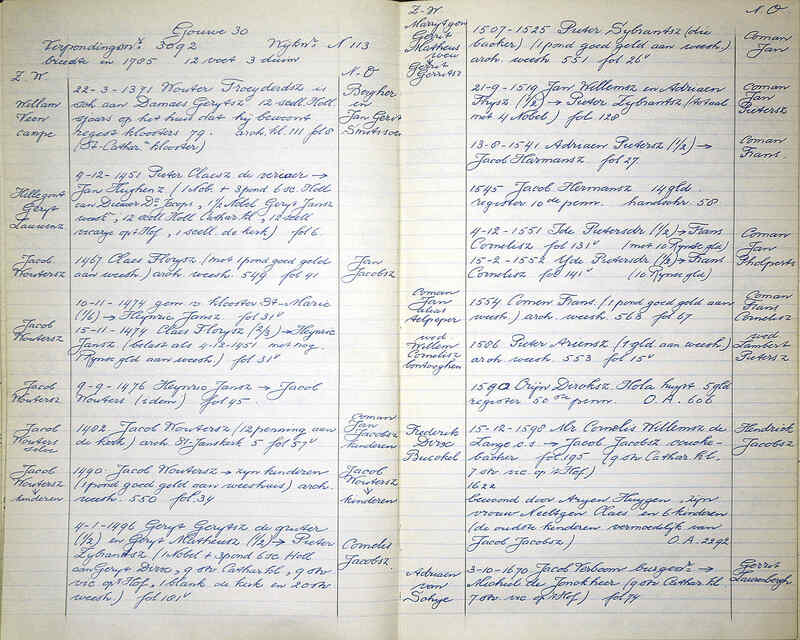 Gouwe 30
Verpondingsnr. 3092 Wijknr. N 113
breedte in 1785 12 voet 3 duim
Z.W. N.O
Willam
Veen
campe
22-3-1371 Wouter Troeyderdsz is
sch. aan Damaes Gerytsz 12 scell. Holl
sjaars op het huis dat hij bewoont
regest kloosters 79. arch. kl. 111 fol 8
(St. Cather. klooster)
Bergher
en
Jan Gerit
Smitssoen
Hillegont
Geryt
Lauwenz
9-12-1451 Pieter Claesz de verwer →
Jan Hughenz (1 Nob. + 3 pond 6 sc Holl
aan Dirc
1/2 Nobel Geryt Jansz
12 scell Holl Cathar. kl, 12 scell
vicarye op 't Hof, 1 scell. de kerk) fol 6.
Jacob
Woutersz
1467 Claes Florysz (met 1 pond goed geld
aan weesh) arch. weesh. 549 fol 41
Jan
Jacobsz
Jacob
Woutersz
10-11-1474 gem. v. klooster St. Marie
(1/6) → Heynric Jansz fol 31v
15-11-1474 Claes Florysz (2/3) → Heynric
Jansz (belast als 4-12-1451 met nog
Rijnse gld aan weesh) fol 31v
Jacob
Woutersz
9-9-1476 Heynric Jansz → Jacob
Wouters (idem) fol 45.
Jacob
Wouters
1482 Jacob Woutersz (12 penning aan
de kerk) arch. St. Janskerk 5 fol 57v
Coman
Jan
Jacobsz
kinderen
Jacob
Woutersz
↓
kinderen
1490 Jacob Woutersz → zijn kinderen
(1 pond goed geld aan weeshuis) arch.
weesh. 550 fol 34
Jacob
Woutersz
↓
kinderen
4-1-1496 Geryt Gerytsz de gruter
(1/2) en Geryt Matheusz (1/2) → Pieter
Zybrantsz (1 Nobel + 3 pond 6 sc Holl
aan Geryt Dircx, 9 stv Cathar kl, 9 stv
vic op 't Hof, 1 blank de kerk en 20 stv
weesh) fol 101v
Cornelis
Jacobsz
Z-W N.O
Gerrit
Matheus
↓
Gerrit
Gerritsz
1507-1525 Pieter Sybrantsz (die
backer) (1 pond goed geld aan weesh)
arch. weesh 551 fol 26v
Coman
Jan
21-9-1519 Jan Willemsz en Adriaen
Thysz (1/2) → Pieter Zybrantsz (totaal
met 4 Nobel) fol 128
Coman
Jan
Pietersz
13-8-1541 Adriaen Pietersz (1/2) →
Jacob Harmansz fol 27
Coman
Frans.
1545 Jacob Hermansz 14 gld
register 10de penn. handschr. 58
4-12-1551 Ide Pietersdr (1/2) → Frans
Cornelisz fol 131v (met 10 Rynse gld)
15-2-1552 Yde Pietersdr (1/2) → Frans
Cornelisz fol 141v (10 Rynse gld)
Coman
Jan
Coman
Jan
alias
Aelpaper
1554 Comen Frans (1 pond goed geld aan
weesh) arch. weesh. 563 fol 67
Coman
Frans
Cornelisz
wed
Willem
Cornelisz
1586 Pieter Ariensz (1 gld aan weesh)
arch weesh. 553 fol 15v
wed
Lambert
Pietersz
1580 Crijn Dircksz. Hola huyrt 5 gld
register 50ste penn. O.A. 606
Frederick
Dircx
Buockel
15-12-1598 Mr. Cornelis Willemsz de
Lange c.s. → Jacob Jacobsz
backer fol 195 (9 stv Cathar. kl.
7 stv vic op 't Hof)
Hendrick
Jacobsz
1622
bewoond door Aryen Huygen, zijn
vrouw Neeltgen Claes en 6 kinderen
(de oudste kinderen vermoedelijk van
Jacob Jacobsz) O.A. 2292
Adriaen
van
3-10-1670 Jacob Verboom burgemr. →
Michiel de Jonckheer (9 stv Cathar. kl.
7 stv. vic op 't Hof) fol 74
Gerrit